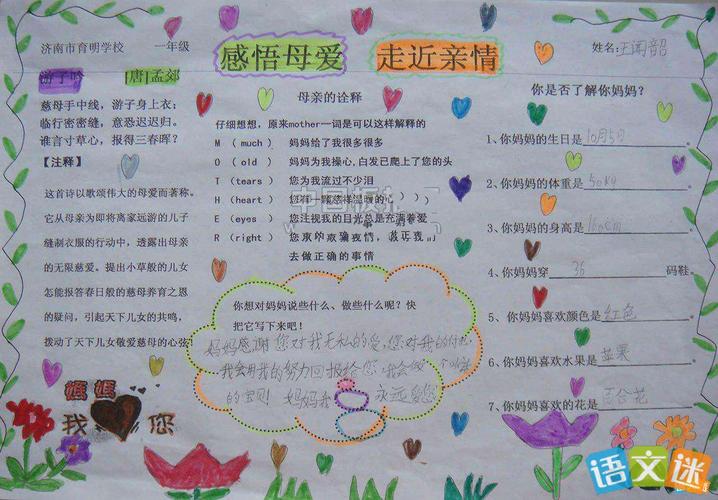 济南市育明学校 一年级
感悟母爱 走近亲情
姓名:王闻韶
游子吟 [唐]孟郊
慈母手中线,游子身上衣;
临行密密缝,意恐迟迟归。
谁言寸草心,报得三春晖?
【注释】
这首诗以歌颂伟大的母爱而著称。
它从母亲为即将离家远游的儿子
缝制衣服的行动中,透露出母亲
的无限慈爱。提出小草般的儿女
怎能报答春日般的慈母养育之恩
的疑问,引起天下儿女的共鸣,
拨动了天下儿女敬爱慈母的心弦!
媽媽
我 您
母亲的诠释
仔细想想,原来mother一词是可以这样解释的
M (much) 妈妈给了我很多很多
O (old) 妈妈为我操心,白发已爬上了您的头
T (tears) 您为我流过不少泪
H (heart) 您有一颗慈祥温暖的心
E (eyes) 您注视我的目光总是充满着爱
R (right) 您
去做正确的事情
你想对妈妈说些什么、做些什么呢?快
把它写下来吧!
妈妈感谢您对我无私的爱,您对我的付出
我会用我的努力回报给您,我会做个
的宝贝!妈妈我 永远爱您
你是否了解你妈妈?
1、你妈妈的生日是10月5日
2、你妈妈的体重是50kg
3、你妈妈的身高是160cm
4、你妈妈穿 36 码鞋。
5、你妈妈喜欢颜色是红色
6、你妈妈喜欢水果是苹果
7、你妈妈喜欢的花是百合花
语文迷